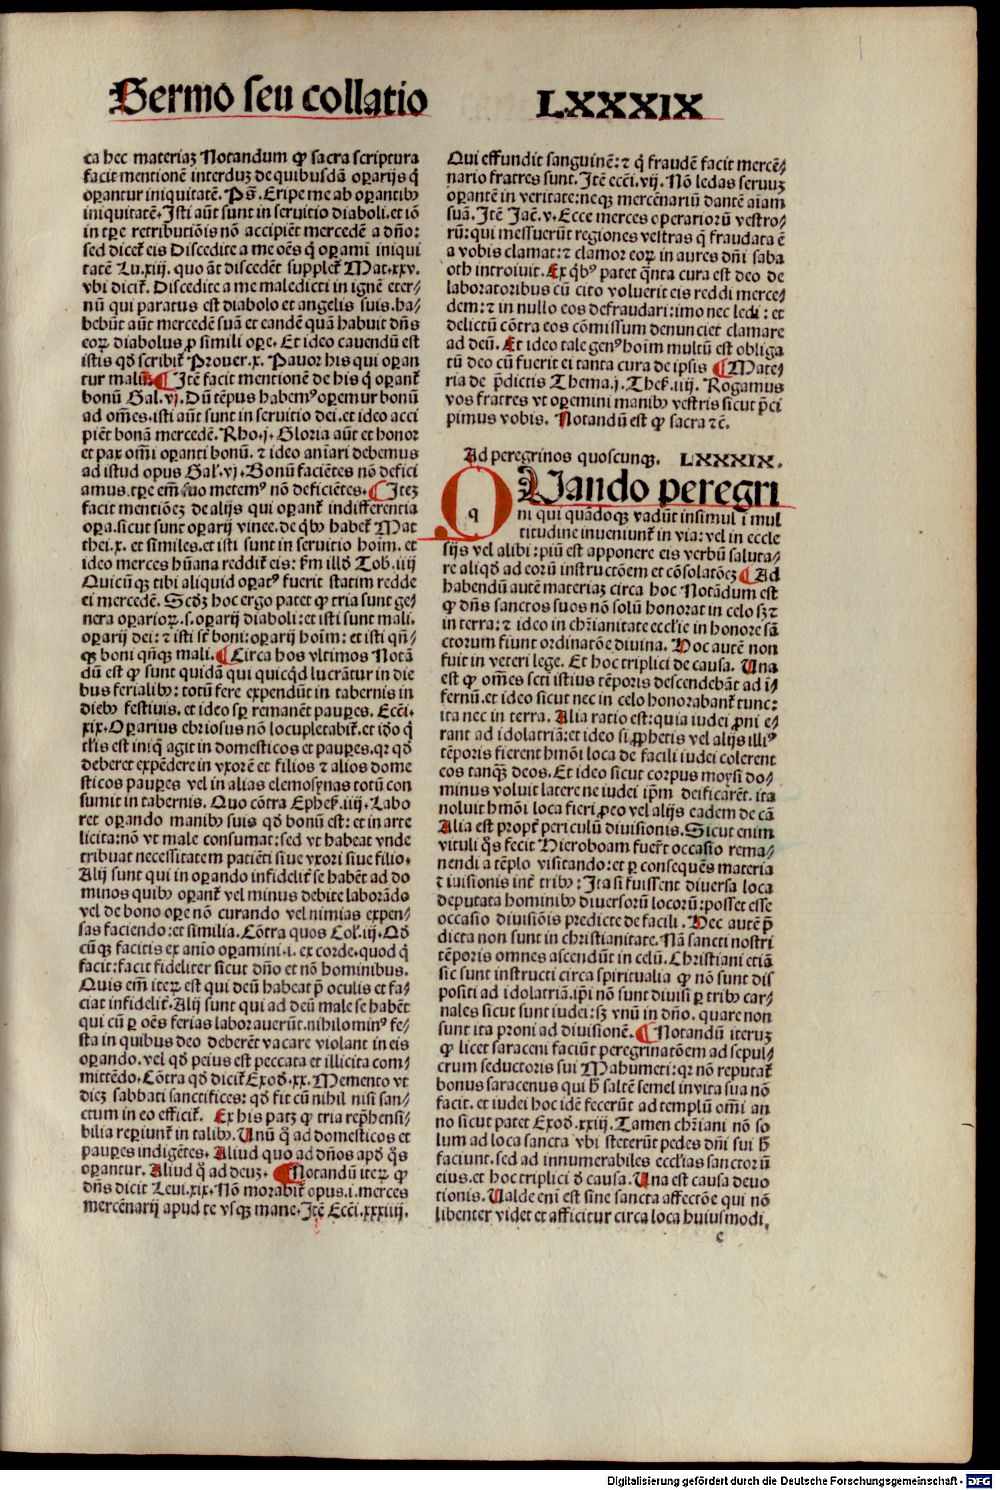 Sermo seu collatio LXXXIX
ca hec materiaꝫ Notandum ꝙ sacra scriptura
facit mentionē interduꝫ de quibusdā oꝑarijs q̄
oꝑantur iniquitatē. Ps̄. Eripe me ab oꝑantibꝰ
iniquitatē. Isti aūt sunt in seruitio diaboli. et iō
in tꝑe retributiōis nō accipiēt mercedē a dn̄o:
sed dicet̄ eis Discedite a me oēs q̄ oꝑamī iniqui
tatē Lu.xiij. quo āt discedēt supplet̄ Mat.xxv.
vbi dicit̄. Discedite a me maledicti in ignē eter-
nū qui paratus est diabolo et angelis suis. ha-
bebūt aūt mercedē suā et eandē quā habuit dn̄s
eoꝝ diabolus ꝓ simili oꝑe. Et ideo cauendū est
istis qd̄ scribit̄ Prouer.x. Pauor his qui oꝑan
tur malū. ¶ Itē facit mentionē de his q̄ oꝑant̄
bonū Gal.vj. Dū tēpus habemꝰ oꝑemur bonū
ad om̄es. isti aūt sunt in seruitio dei. et ideo acci
piēt bonā mercedē. Rho.j. Gloria aūt et honor
et pax om̄i oꝑanti bonū. ⁊ ideo anīari debemus
ad istud opus Gal̄.vj. Bonū faciētes nō defici
amus. tꝑe em̄ suo metemꝰ nō deficiētes. ¶ Iteꝫ
facit mentiōeꝫ de alijs qui oꝑant̄ indifferentia
oꝑa. sicut sunt oꝑarij vinee. de qͥbꝰ habet̄ Mat
thei.x. et similes. et isti sunt in seruitio hoīm. et
ideo merces hūana reddit̄ eis: ẜm illd̄ Tob.iiij
Quicūqꝫ tibi aliquid oꝑatꝰ fuerit statim redde
ei mercedē. Scd̄ꝫ hoc ergo patet ꝙ tria sunt ge-
nera oꝑarioꝝ. s. oꝑarij diaboli: et isti sunt mali.
oꝑarij dei: ⁊ isti st̄ boni: oꝑarij hoīm: et isti qn̄-
qꝫ boni qn̄qꝫ mali. ¶ Circa hos vltimos Notā
dū est ꝙ sunt quidā qui quicqd̄ lucrātur in die
bus ferialibꝰ: totū fere expendūt in tabernis in
diebꝰ festiuis. et ideo sꝑ remanēt pauꝑes. Ecc̄i.
xix. Oꝑarius ebriosus nō locupletabit̄. et iō q̄
tl̄is est iniq̄ agit in domesticos et pauꝑes. qꝛ qd̄
deberet expēdere in vxorē et filios ⁊ alios dome
sticos pauꝑes vel in alias elemosynas totū con
sumit in tabernis. Quo cōtra Ephes̄.iiij. Labo
ret oꝑando manibꝰ suis qd̄ bonū est: et in arte
licita: nō vt male consumat: sed vt habeat vnde
tribuat necessitatem patiēti siue vxori siue filio.
Alij sunt qui in oꝑando infidelit̄ se habēt ad do
minos quibꝰ oꝑant̄ vel minus debite laborādo
vel de bono oꝑe nō curando vel nimias expen-
sas faciendo: et similia. Cōtra quos Col̄.iij. Qd̄
cūqꝫ facitis ex aīo oꝑamini. i. ex corde. quod q̄
facit: facit fideliter sicut dn̄o et nō hominibus.
Quis em̄ iteꝝ est qui deū habeat p̄ oculis et fa-
ciat infidelit̄. Alij sunt qui ad deū male se habēt
qui cū ꝑ oēs ferias laborauerūt. nihilominꝰ fe-
sta in quibus deo deberēt vacare violant in eis
oꝑando. vel qd̄ peius est peccata et illicita com-
mittēdo. Cōtra qd̄ dicit̄ Exod̄.xx. Memento vt
dieꝫ sabbati sanctifices: qd̄ fit cū nihil nisi san-
ctum in eo efficit̄. Ex his patꝫ ꝙ tria rep̄hensi-
bilia reꝑiunt̄ in talibꝰ. Unū q̄ ad domesticos et
pauꝑes indigētes. Aliud quo ad dn̄os apd̄ q̄s
oꝑantur. Aliud q̄ ad deuꝫ. ¶ Notandū iteꝝ ꝙ
dn̄s dicit Leui.xix. Nō morabit̄ opus .i. merces
mercēnarij apud te vsqꝫ mane. Itē Ecc̄i.xxxiiij.
Qui effundit sanguinē: ⁊ q̄ fraudē facit mercē-
nario fratres sunt. Itē ecc̄i.vij. Nō ledas seruuꝫ
oꝑantē in veritate: neqꝫ mercēnariū dantē aīam
suā. Itē Jac̄.v. Ecce merces operariorū vestro-
rū: qui messuerūt regiones vestras q̄ fraudata ē
a vobis clamat: ⁊ clamor eoꝝ in aures dn̄i saba
oth introiuit. Ex qͥbꝰ patet qn̄ta cura est deo de
laboratoribus cū cito voluerit eis reddi merce-
dem: ⁊ in nullo eos defraudari: imo nec ledi: et
delictū cōtra eos cōmissum denunciet clamare
ad deū. Et ideo tale genꝰ hoīm multū est obliga
tū deo cū fuerit ei tanta cura de ipsis ¶ Mate-
ria de p̄dictis Thema.j. Thes̄.iiij. Rogamus
vos fratres vt oꝑemini manibꝰ vestris sicut p̄ci
pimus vobis. Notandū est ꝙ sacra ⁊c̄.
Ad peregrinos quoscunqꝫ. LXXXIX.
Quando peregri
ni qui quādoqꝫ vadūt insimul ī mul
titudine inueniunt̄ in via: vel in eccle
sijs vel alibi: piū est apponere eis verbū saluta-
re aliqd̄ ad eorū instructōem et cōsolatōeꝫ ¶ Ad
habendū autē materiaꝫ circa hoc Notādum est
ꝙ dn̄s sanctos suos nō solū honorat in celo sꝫ ⁊
in terra: ⁊ ideo in chr̄ianitate eccl̄ie in honore sā
ctorum fiunt ordinatōe diuina. Hoc autē non
fuit in veteri lege. Et hoc triplici de causa. Una
est ꝙ om̄es sc̄ti istius tēporis descendebāt ad ī-
fernū. et ideo sicut nec in celo honorabant̄ tunc:
ita nec in terra. Alia ratio est: quia iudei ꝓni e-
rant ad idolatriā: et ideo si ꝓphetis vel alijs illiꝰ
tēporis fierent hmōi loca de facili iudei colerent
eos tanqꝫ deos. Et ideo sicut corpus moysi do-
minus voluit latere ne iudei ip̄m deificarēt. ita
noluit hmōi loca fieri ꝓeo vel alijs eadem de cā
Alia est propt̄ periculū diuisionis. Sicut enim
vituli q̄s fecit Hieroboam fuer̄t occasio rema-
nendi a tēplo visitando: et ꝑ consequēs materia
diuisionis int̄ tribꝰ: Ita si fuissent diuersa loca
deputata hominibꝰ diuersorū locorū: posset esse
occasio diuisiōis predicte de facili. Hec autē p̄
dicta non sunt in christianitate. Nā sancti nostri
tēporis omnes ascendūt in celū. Christiani etiā
sic sunt instructi circa spiritualia ꝙ nō sunt dis
positi ad idolatriā. ip̄i nō sunt diuisi ꝑ tribꝰ car-
nales sicut sunt iudei: sꝫ vnū in dn̄o. quare non
sunt ita proni ad diuisionē. ¶ Notandū iteruꝫ
ꝙ licet saraceni faciūt peregrinatōem ad sepul-
crum seductoris sui Mahumeti: qꝛ nō reputat̄
bonus saracenus qui h̄ saltē semel in vita sua nō
facit. et iudei hoc idē fecerūt ad templū om̄i an
no sicut patet Exod̄.xxiij. Tamen chr̄iani nō so
lum ad loca sancta vbi steterūt pedes dn̄i sui h̄
faciunt. sed ad innumerabiles eccl̄ias sanctorū
eius. et hoc triplici d̄ causa. Una est causa deuo
tionis. Ualde em̄ est sine sancta affectōe qui nō
libenter videt et afficitur circa loca huiusmodi.
c
Digitalisierung gefördert durch die Deutsche Forschungsgemeinschaft - DFG